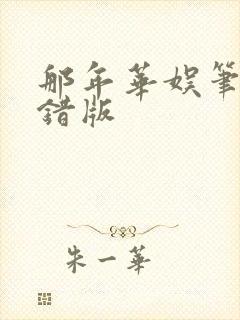 那年華娛筆
錯版
朱一華